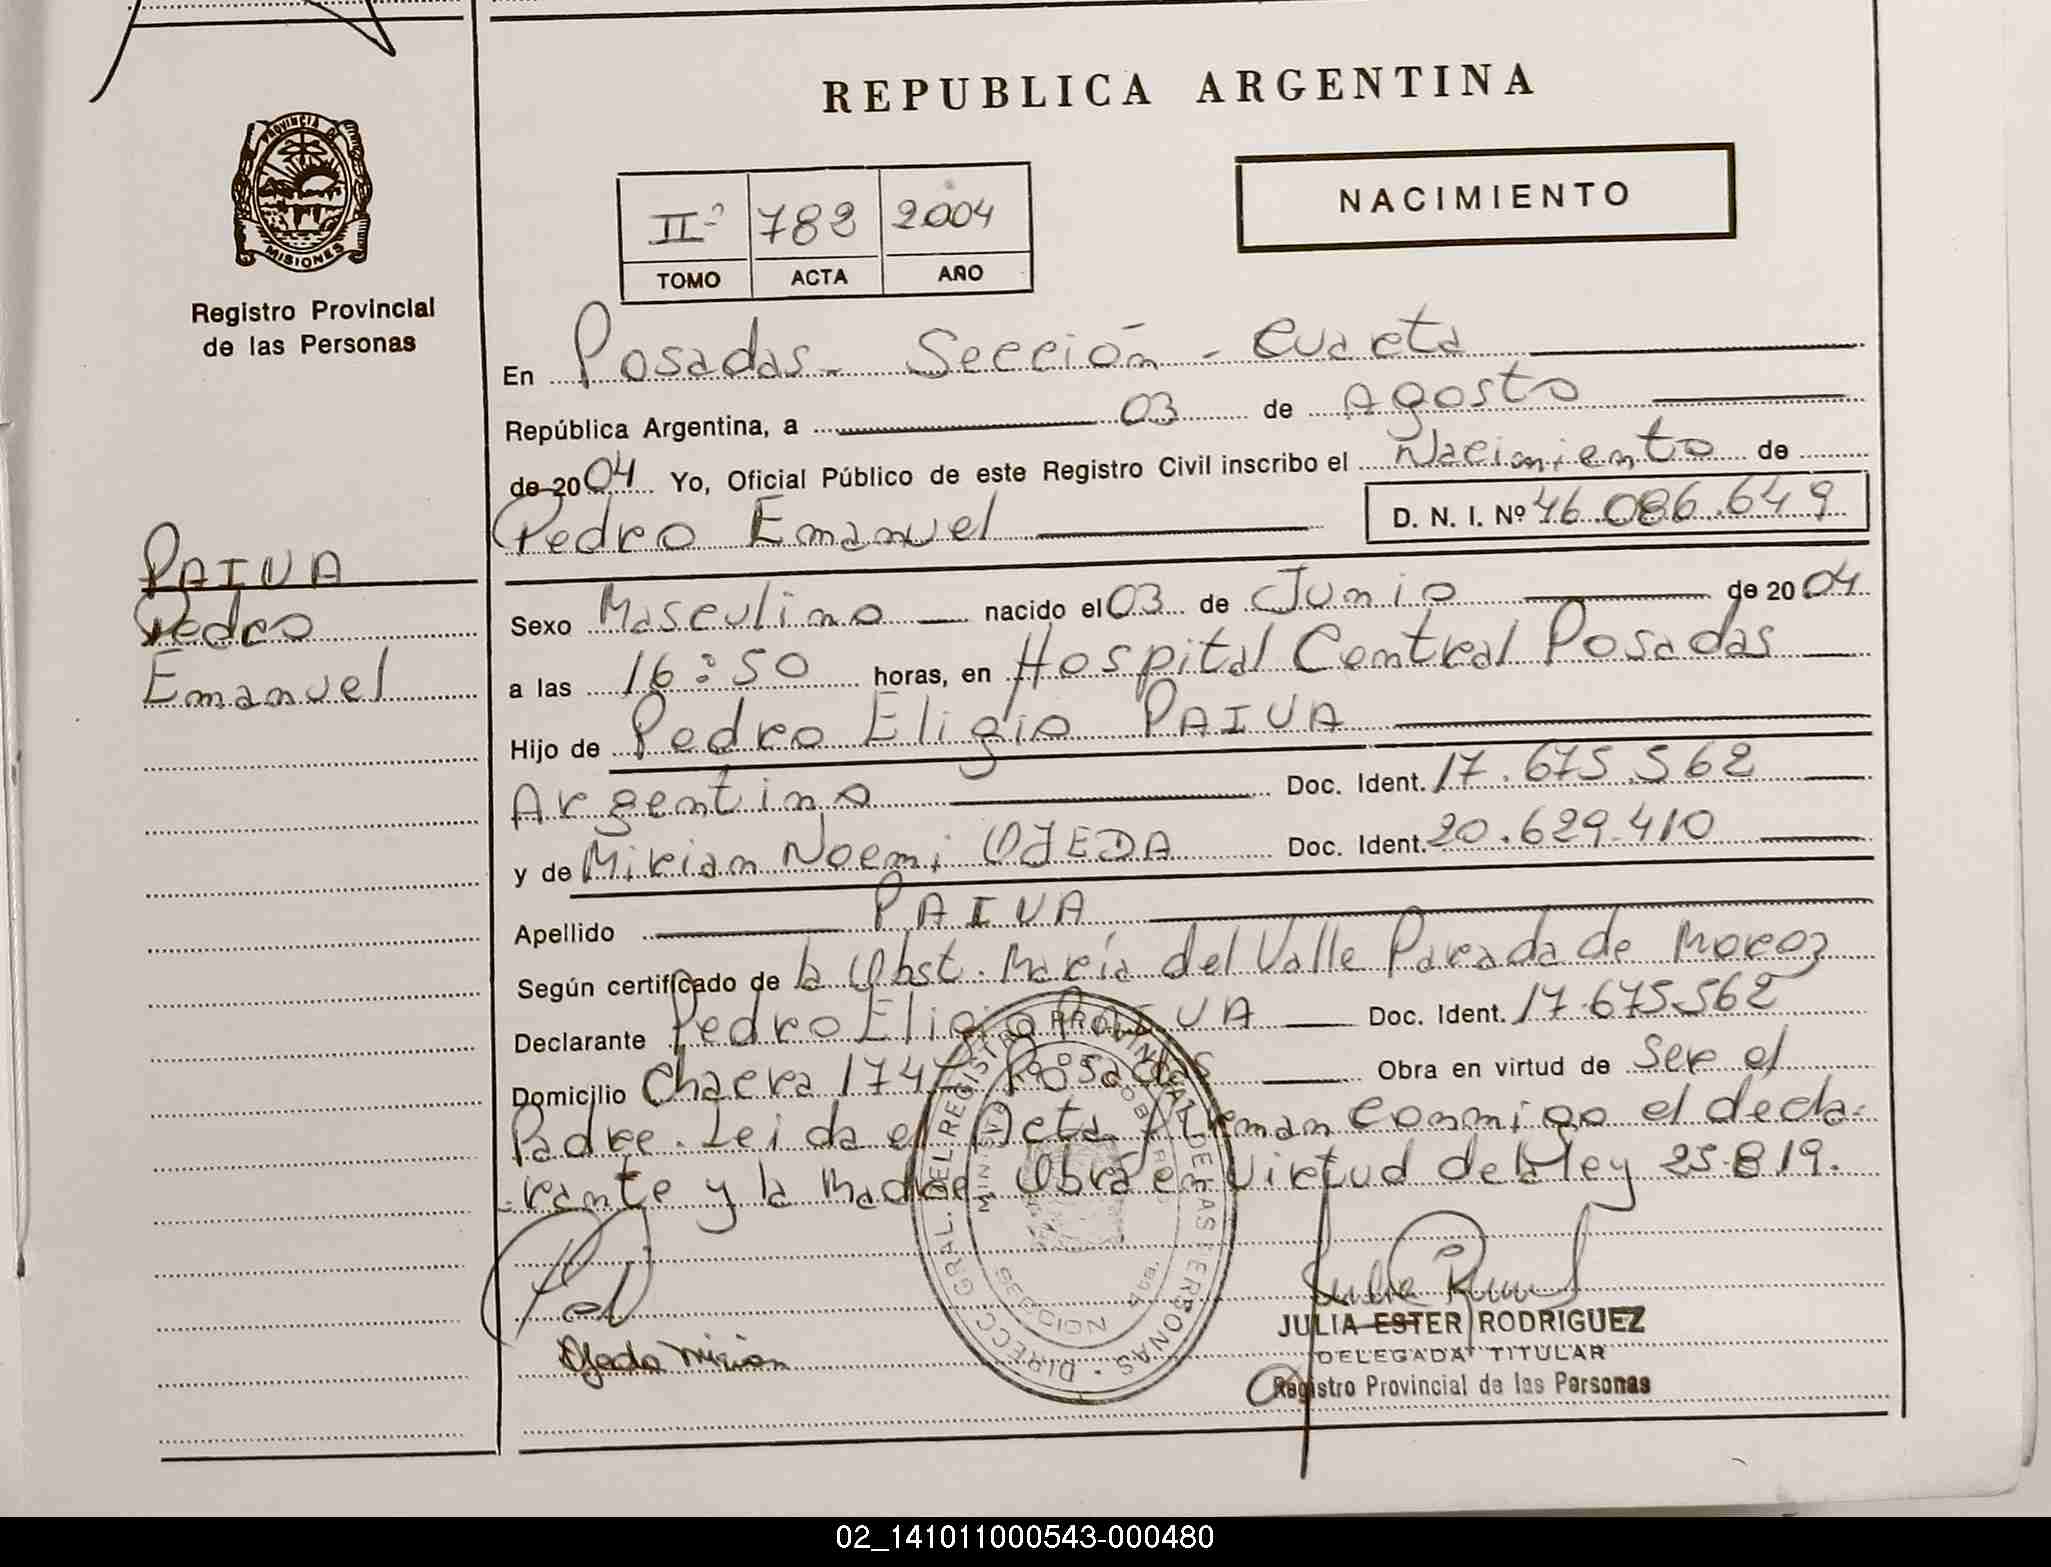 REPUBLICA ARGENTINA
PROVINCIA DE
MISIONES
Registro Provincial
de las Personas
NACIMIENTO
IIº 782 2004
TOMO ACTA AÑO
En Posadas - Sección - Cuarta
República Argentina, a 03 de Agosto
de 2004 Yo, Oficial Público de este Registro Civil inscribo el Nacimiento de
Pedro Emanuel D. N. I. Nº 46.086.649
PAIVA
Pedro
Emanuel
Sexo Masculino nacido el 03 de Junio de 2004
a las 16:50 horas, en Hospital Central Posadas
Hijo de Pedro Eligio PAIVA
Argentino Doc. Ident. 17.675.562
y de Mirian Noemi OJEDA Doc. Ident. 20.629.410
Apellido PAIVA
Según certificado de la Obst. María del Valle Parada de Moroz
Declarante Pedro Eligio PAIVA Doc. Ident. 17.675.562
Domicilio Chacra 174 Posadas Obra en virtud de Ser el
Padre. Leida el Acta Firman conmigo el decla-
-rante y la Madre. Obra en Virtud de la Ley 25.819.
DIRECC. GRAL. DEL REGISTRO PROVINCIAL DE LAS PERSONAS
Ojeda Mirian
JULIA ESTER RODRIGUEZ
DELEGADA TITULAR
Registro Provincial de las Personas
02_141011000543-000480